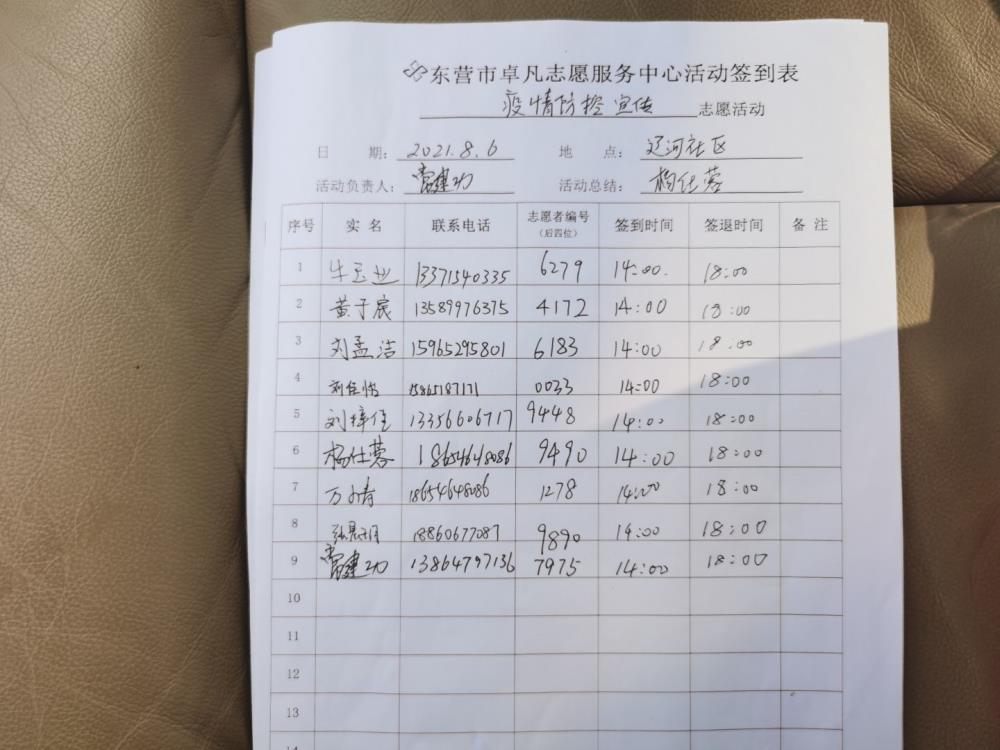 东营市卓凡志愿服务中心活动签到表
疫情防控宣传 志愿活动
日 期: 2021.8.6 地 点: 辽河社区
活动负责人: 常建功 活动总结: 杨仕蓉
序号 实名 联系电话 志愿者编号(后四位) 签到时间 签退时间 备注
1 牛玉业 13371540335 6279 14:00. 18:00
2 黄于宸 13589976375 4172 14:00 18:00
3 刘孟洁 15965295801 6183 14:00 18:00
4 刘佳怡 15865187171 0033 14:00 18:00
5 刘梓佳 13356606717 9448 14:00 18:00
6 杨仕蓉 18654648086 9490 14:00 18:00
7 18654648086 1278 14:00 18:00
8 18860677087 9890 14:00 18:00
9 常建功 13864797136 7975 14:00 18:00
10
11
12
13